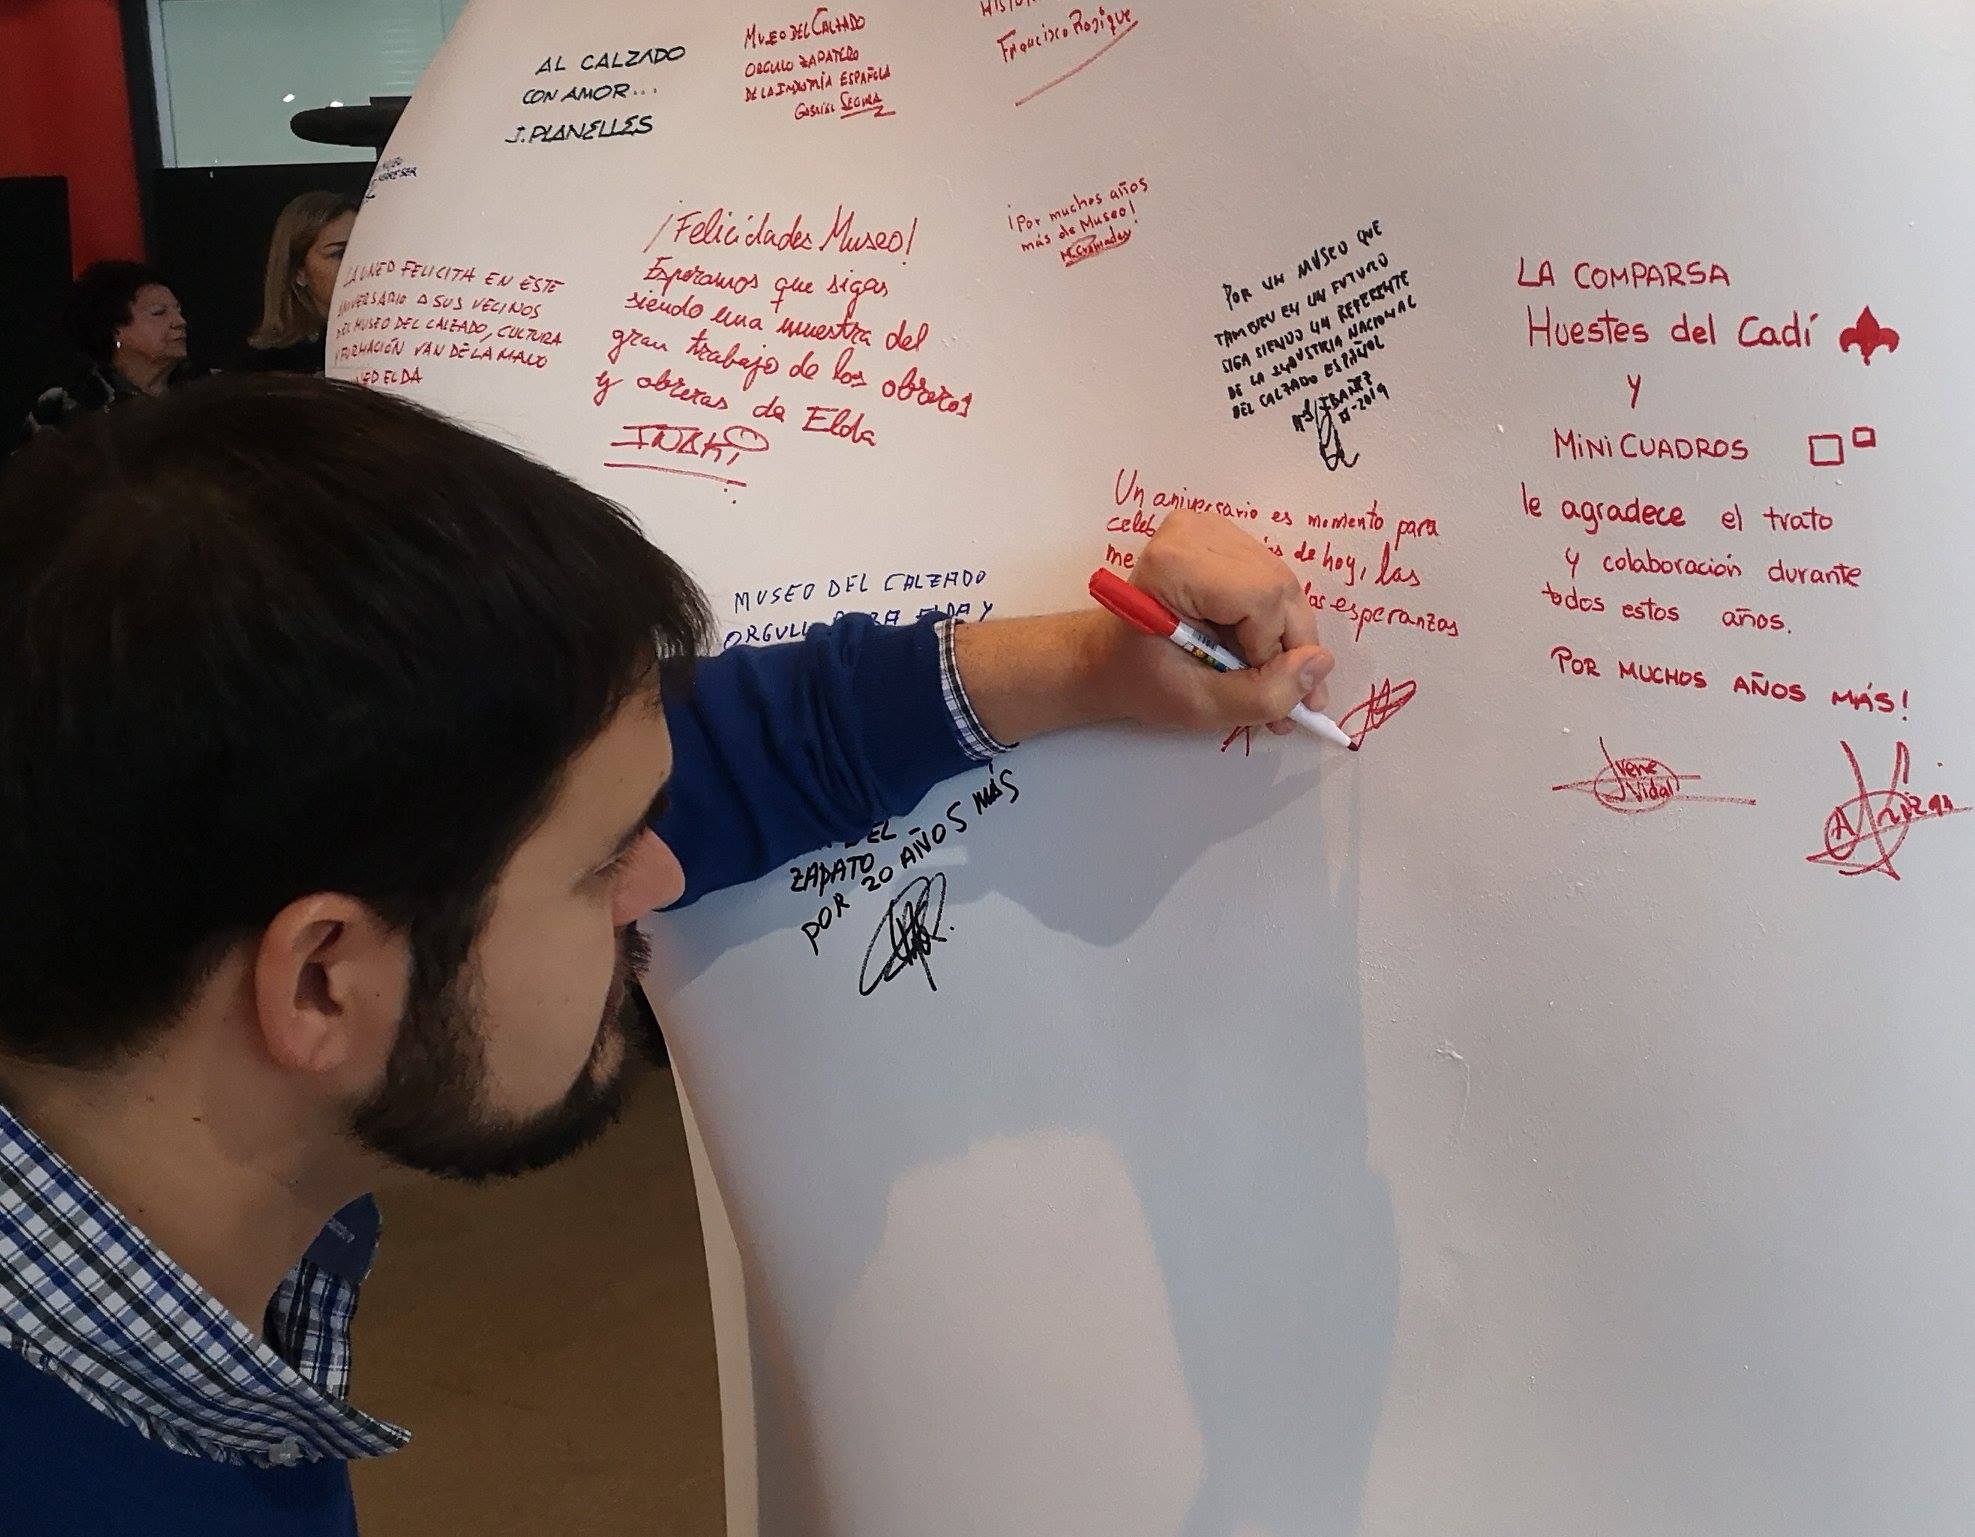 AL CALZADO
CON AMOR...
J. PLANELLES
MUSEO DEL CALZADO
ORGULLO ZAPATERO
DE LA INDUSTRIA ESPAÑOLA
GABRIEL SEGURA
Francisco
LA UNED FELICITA EN ESTE
ANIVERSARIO A SUS VECINOS
DEL MUSEO DEL CALZADO, CULTURA
Y FORMACIÓN VAN DE LA MANO
UNED ELDA
¡Felicidades Museo!
Esperamos que sigas
siendo una muestra del
gran trabajo de los obreros
y obreras de Elda
IÑAKI
¡Por muchos años
más de Museo!
POR UN MUSEO QUE
TAMBIEN EN UN FUTURO
SIGA SIENDO UN REFERENTE
DE LA INDUSTRIA NACIONAL
DEL CALZADO ESPAÑOL
IBAÑEZ
2019
Un aniversario es momento para
celeb
me de hoy, las
las esperanzas
MUSEO DEL CALZADO
ORGULL ELDA Y
EL
ZAPATO
POR 20 AÑOS MÁS
LA COMPARSA
Huestes del Cadí
Y
MINICUADROS
le agradece el trato
y colaboración durante
todos estos años.
POR MUCHOS AÑOS MÁS!
Irene
Vidal